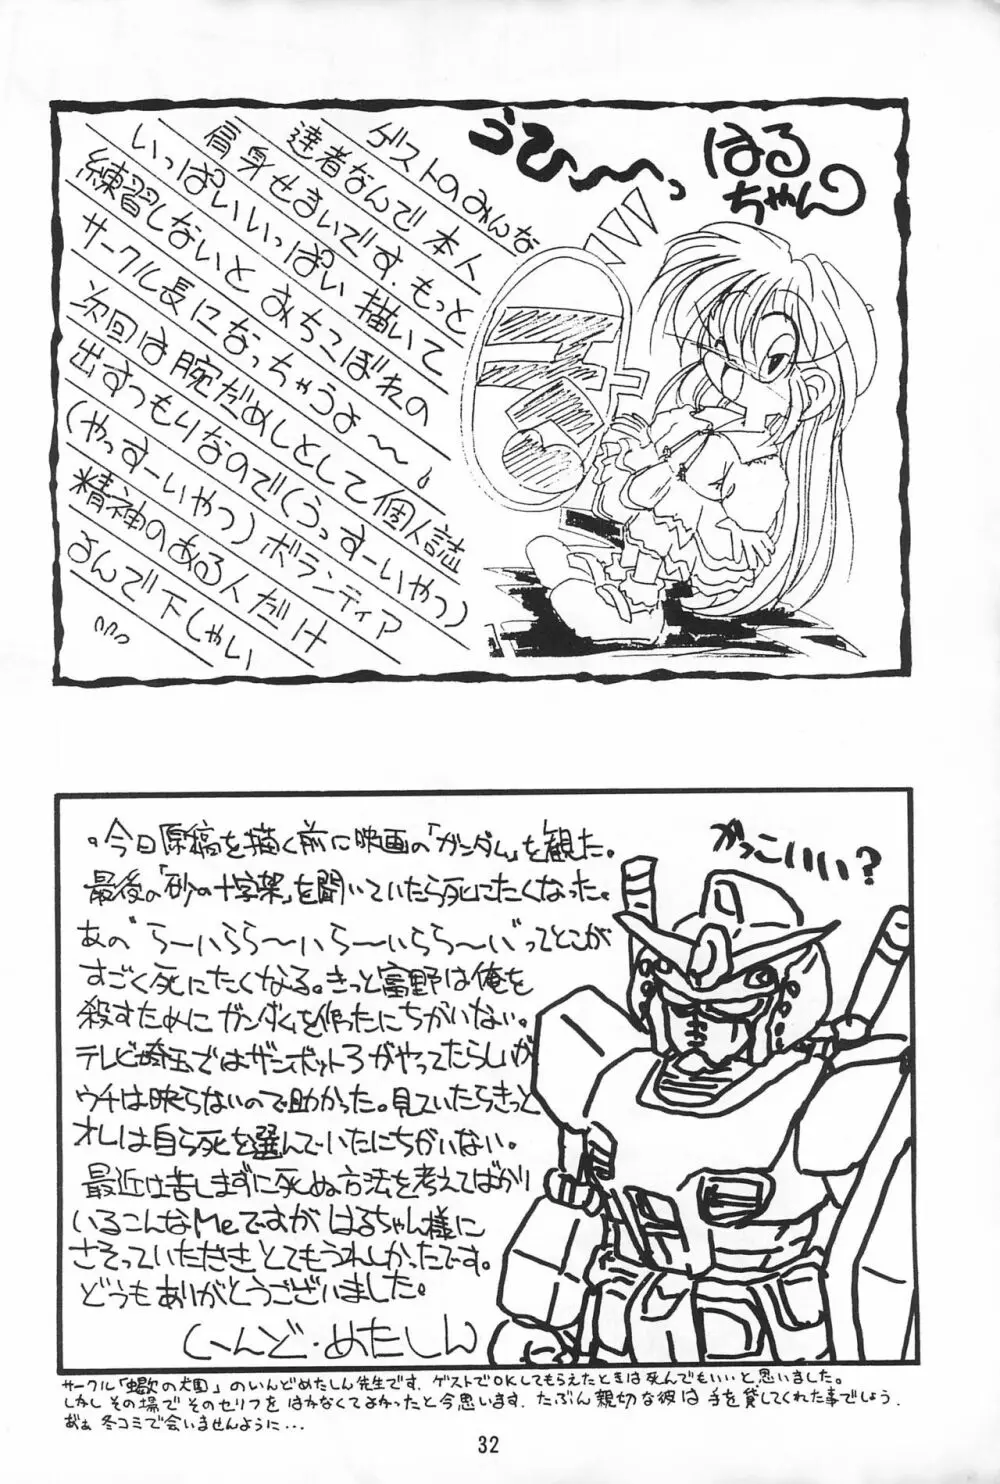 ゴひ〜〜っ
はる
ちゃん
ゲストのみんな
達者なんで本人
肩身せまいです.もっと
いっぱいいっぱい描いて
練習しないとおちこぼれの
サークル長になっちゃうよ〜
次回は腕だめしとして個人誌
出すつもりなので(うっすーいやつ)
(やっすーいやつ)ボランティア
精神のある人だけ
よんで下しゃい
がっこいい?
。今日原稿を描く前に映画の「ガンダム」を観た。
最後の「砂の十字架」を聞いていたら死にたくなった。
あの〝らーいらら〜いらーいらら〜い〟ってとこが
すごく死にたくなる。きっと富野は俺を
殺すためにガンダムを作ったにちがいない。
テレビ埼玉ではザンボット3がやってたらしいが
ウチは映らないので助かった。見ていたらきっと
オレは自ら死を選んでいたにちがいない。
最近は苦しまずに死ぬ方法を考えてばかり
いるこんなMeですがはるちゃん様に
さそっていただきとてもうれしかったです。
どうもありがとうございました。
いんど・めたしん
サークル「の犬園」のいんどめたしん先生です.ゲストでOKしてもらえたときは死んでもいいと思いました.
しかしその場でそのセリフをはかなくてよかったと今思います.たぶん親切な彼は手を貸してくれた事でしょう.
おぉ冬コミで会いませんように...
32